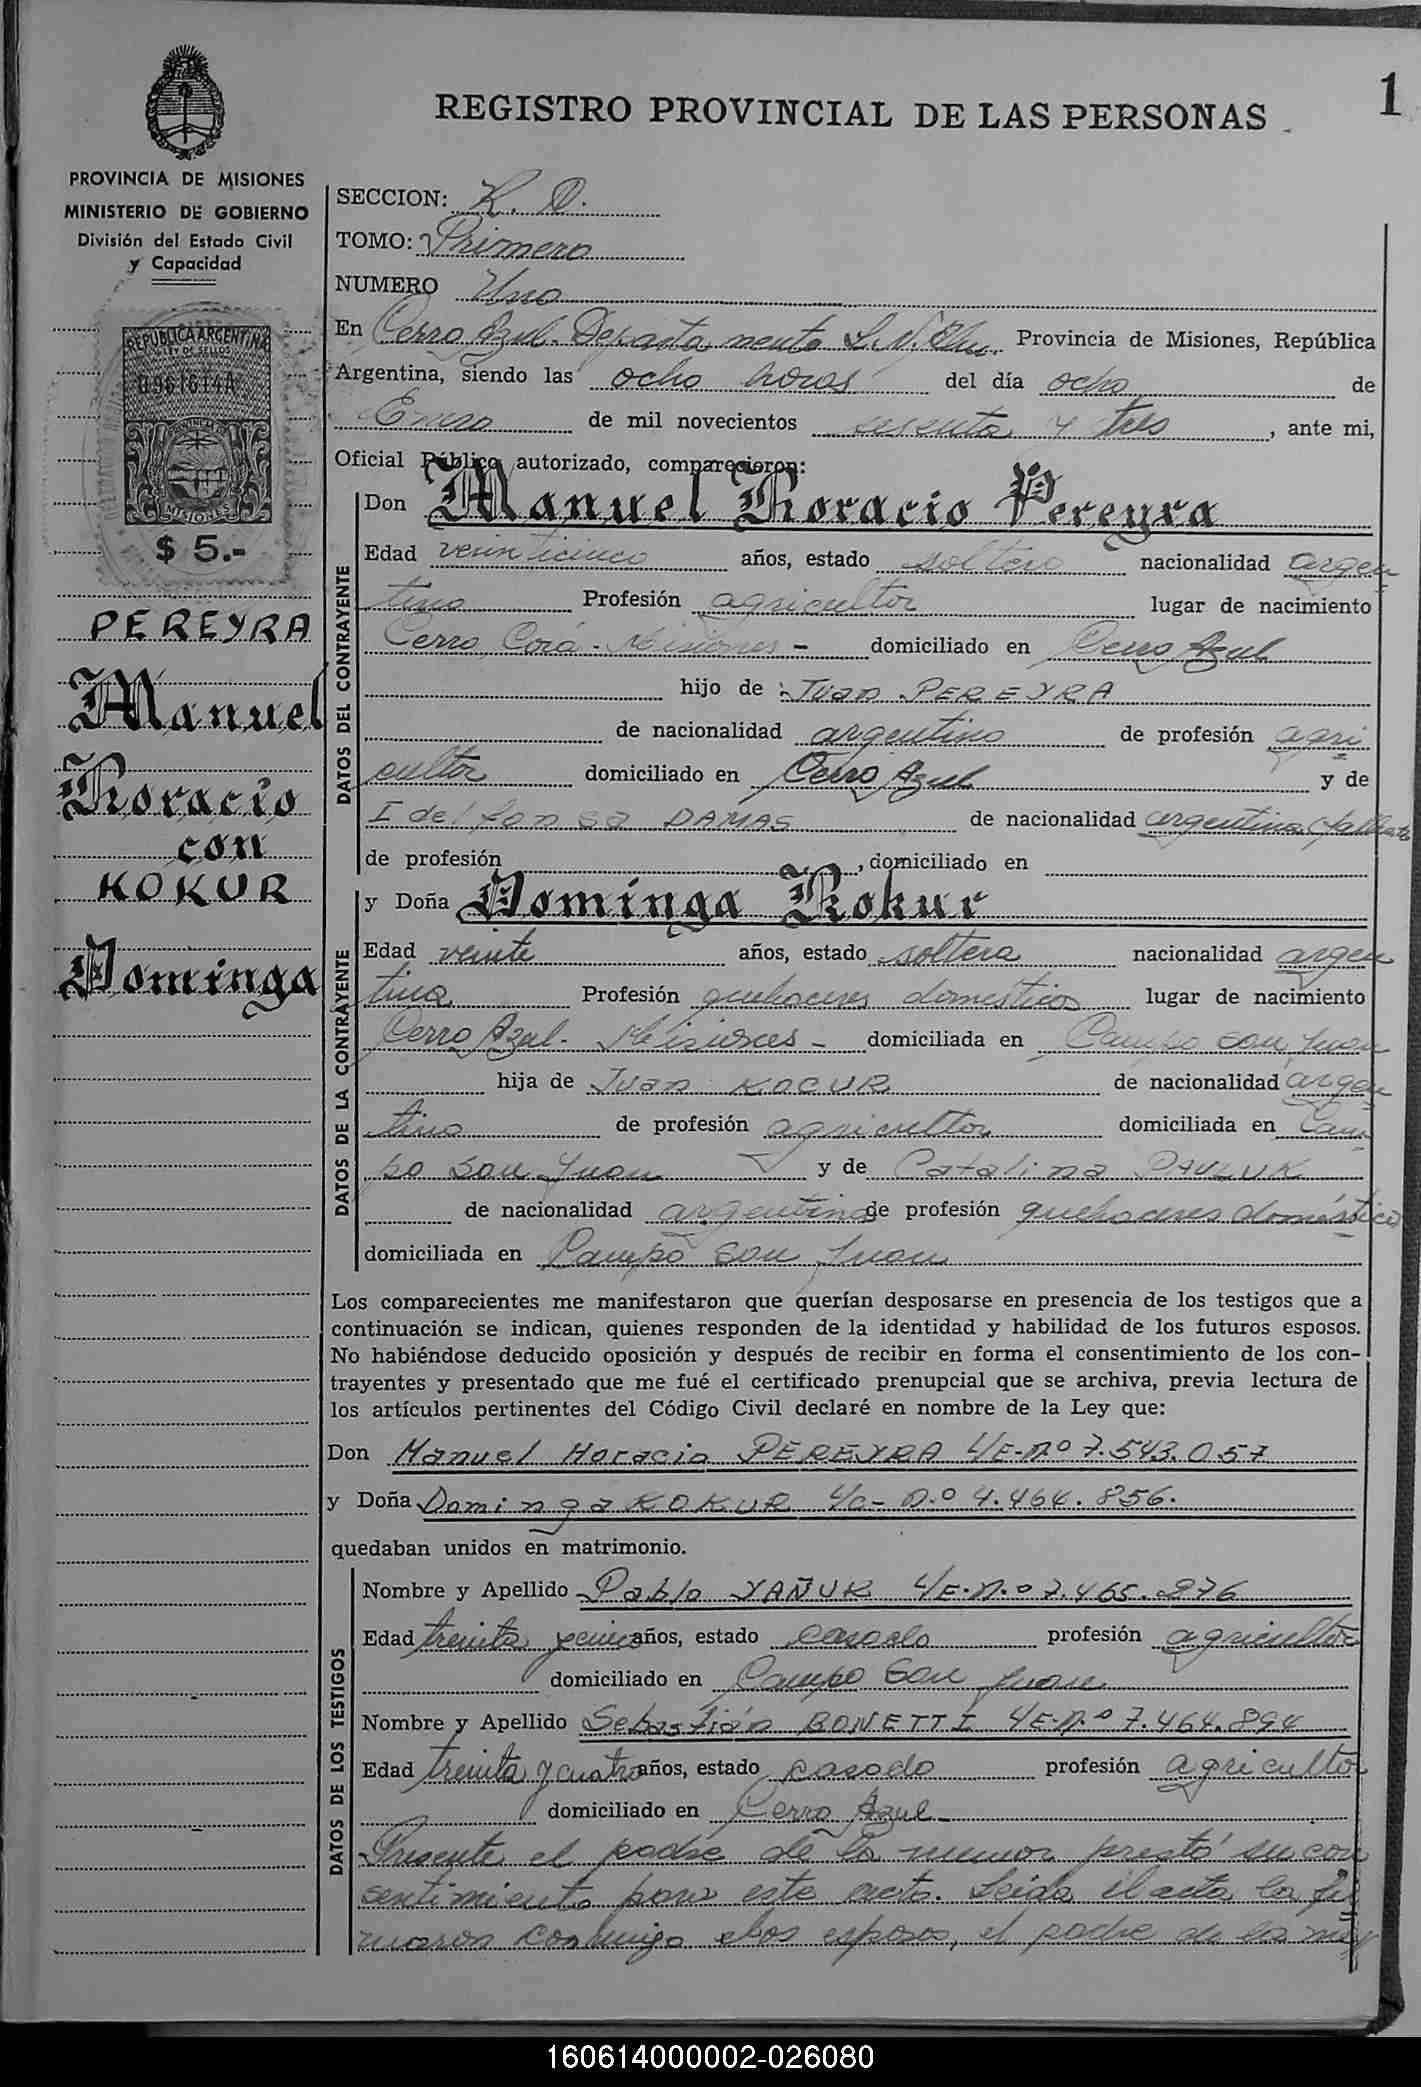 1
REGISTRO PROVINCIAL DE LAS PERSONAS
PROVINCIA DE MISIONES
MINISTERIO DE GOBIERNO
División del Estado Civil
y Capacidad
REPUBLICA ARGENTINA
LEY DE SELLOS
0961614A
MISIONES
$ 5.-
PEREYRA
Manuel
Horacio
con
KOKUR
Dominga
SECCION:
TOMO: Primero
NUMERO Uno
En Cerro Azul. Departamento L.N. Provincia de Misiones, República
Argentina, siendo las ocho horas del día ocho de
Enero de mil novecientos sesenta y tres, ante mi,
Oficial Público autorizado, comparecieron:
DATOS DEL CONTRAYENTE
Don Manuel Horacio Pereyra
Edad veinticinco años, estado soltero nacionalidad argen
tino Profesión agricultor lugar de nacimiento
Cerro Corá - Misiones - domiciliado en Cerro Azul
hijo de : Juan PEREYRA
de nacionalidad argentino de profesión agri
cultor domiciliado en Cerro Azul y de
Idelfonsa DAMAS de nacionalidad argentina
de profesión , domiciliado en
DATOS DE LA CONTRAYENTE
y Doña Dominga Kokur
Edad veinte años, estado soltera nacionalidad argen
tina Profesión quehaceres domesticos lugar de nacimiento
Cerro Azul - Misiones - domiciliada en Campo San Juan
hija de Juan KOCUR de nacionalidad argen
tino de profesión agricultor domiciliada en Cam
po San Juan y de Catalina PAULUK
de nacionalidad argentina de profesión quehaceres domésticos
domiciliada en Campo San Juan
Los comparecientes me manifestaron que querían desposarse en presencia de los testigos que a
continuación se indican, quienes responden de la identidad y habilidad de los futuros esposos.
No habiéndose deducido oposición y después de recibir en forma el consentimiento de los con-
trayentes y presentado que me fué el certificado prenupcial que se archiva, previa lectura de
los artículos pertinentes del Código Civil declaré en nombre de la Ley que:
Don Manuel Horacio PEREYRA L/E-nº 7.543.057
y Doña Dominga KOKUR L/C- n.º 4.464.856.
quedaban unidos en matrimonio.
DATOS DE LOS TESTIGOS
Nombre y Apellido Pablo YAÑUK L/E.n.º 7.465.876
Edad treinta y cinco años, estado casado profesión agricultor
domiciliado en Campo San Juan
Nombre y Apellido Sebastián BONETTI L/E-n.º 7.464.894
Edad treinta y cuatro años, estado casado profesión agricultor
domiciliado en Cerro Azul-
Presente el padre de la menor prestó su con
sentimiento para este acto. Leida el acta la fir
maron conmigo los esposos, el padre de la me
160614000002-026080